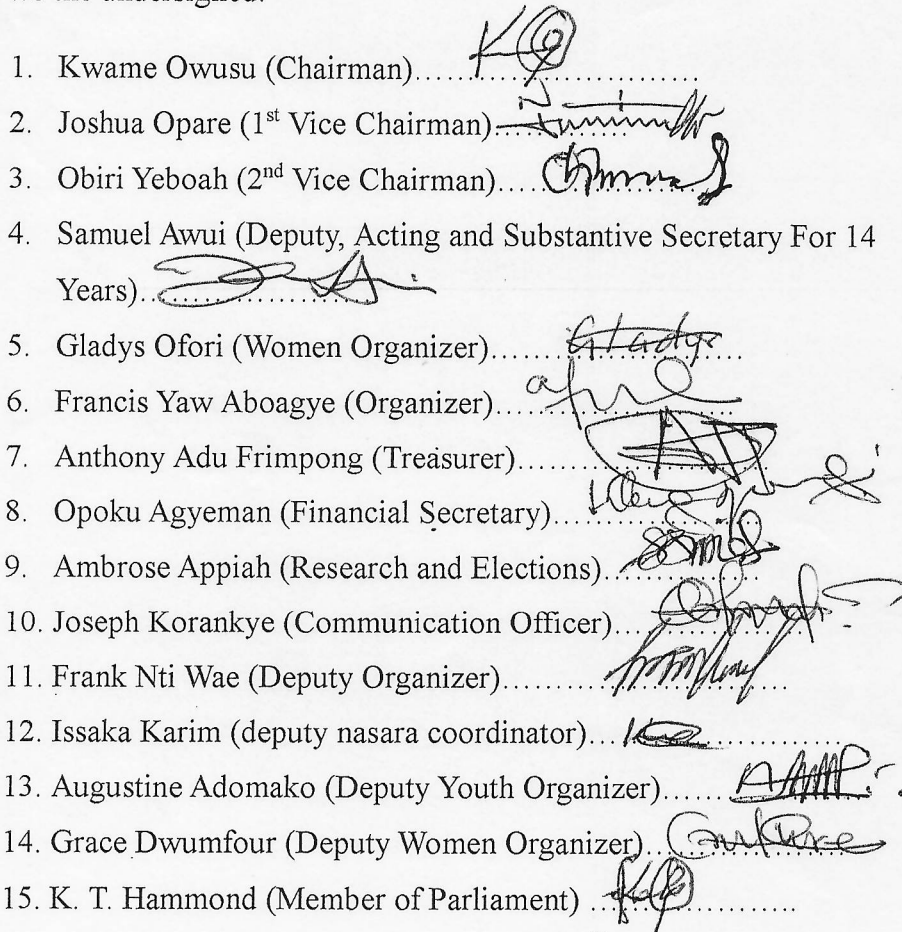 1. Kwame Owusu (Chairman)
2. Joshua Opare (1st Vice Chairman)
3. Obiri Yeboah (2nd Vice Chairman)
4. Samuel Awui (Deputy, Acting and Substantive Secretary For 14
Years)
5. Gladys Ofori (Women Organizer) Gladys
6. Francis Yaw Aboagye (Organizer)
7. Anthony Adu Frimpong (Treasurer)
8. Opoku Agyeman (Financial Secretary)
9. Ambrose Appiah (Research and Elections)
10. Joseph Korankye (Communication Officer)
11. Frank Nti Wae (Deputy Organizer)
12. Issaka Karim (deputy nasara coordinator)
13. Augustine Adomako (Deputy Youth Organizer)
14. Grace Dwumfour (Deputy Women Organizer)
15. K. T. Hammond (Member of Parliament)